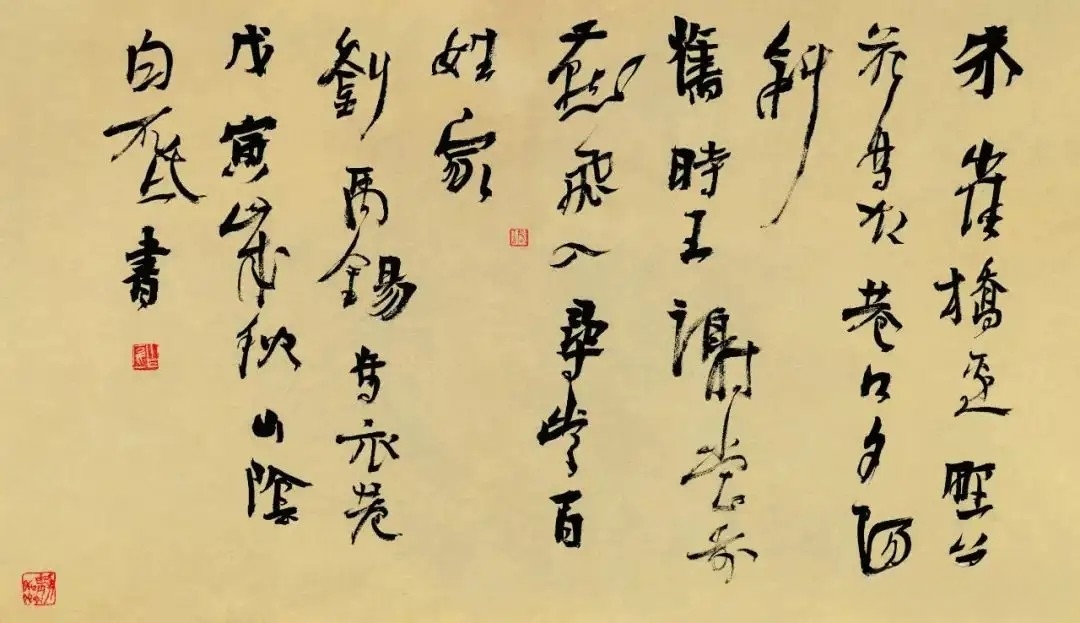 朱雀橋邊野艸
花烏衣巷口夕陽
斜
舊時王謝堂前
燕飛入尋常百
姓家
劉禹錫烏衣巷
戊寅歲秋山陰
白砥書